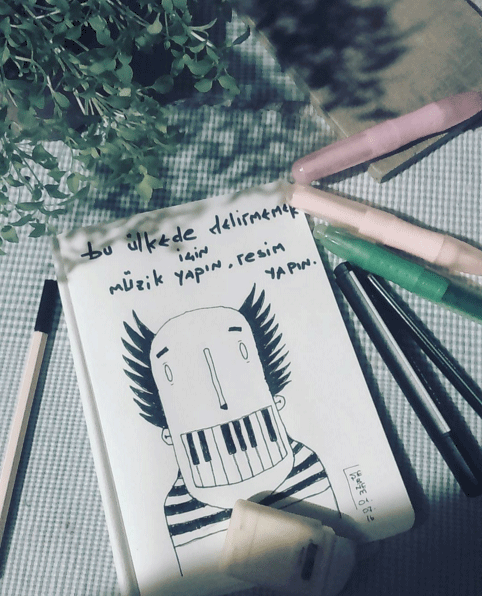 bu ülkede delirmemek
için
müzik yapın. resim
yapın.